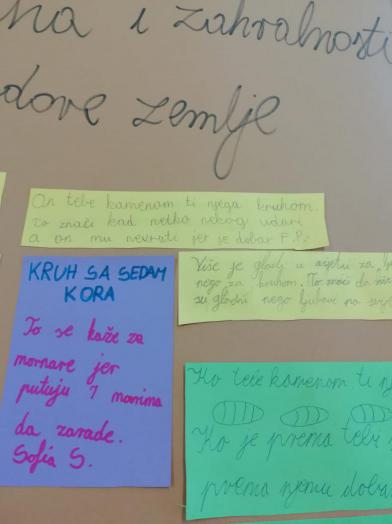 na i zahvalnosti
dove zemlje
On tebe kamenom ti njega kruhom.
To znači kad netko nekog udari
a on mu nevrati jer je dobar F.P.
Više je gladi u svijetu za
nego za kruhom. To znači da
su gladni nego ljubavi na
KRUH SA SEDAM
KORA
To se kaže za
mornare jer
putuju 7 morima
da zarade.
Sofia S.
Ko tebe kamenom ti
Ko je prema tebi
prema njemu dobar